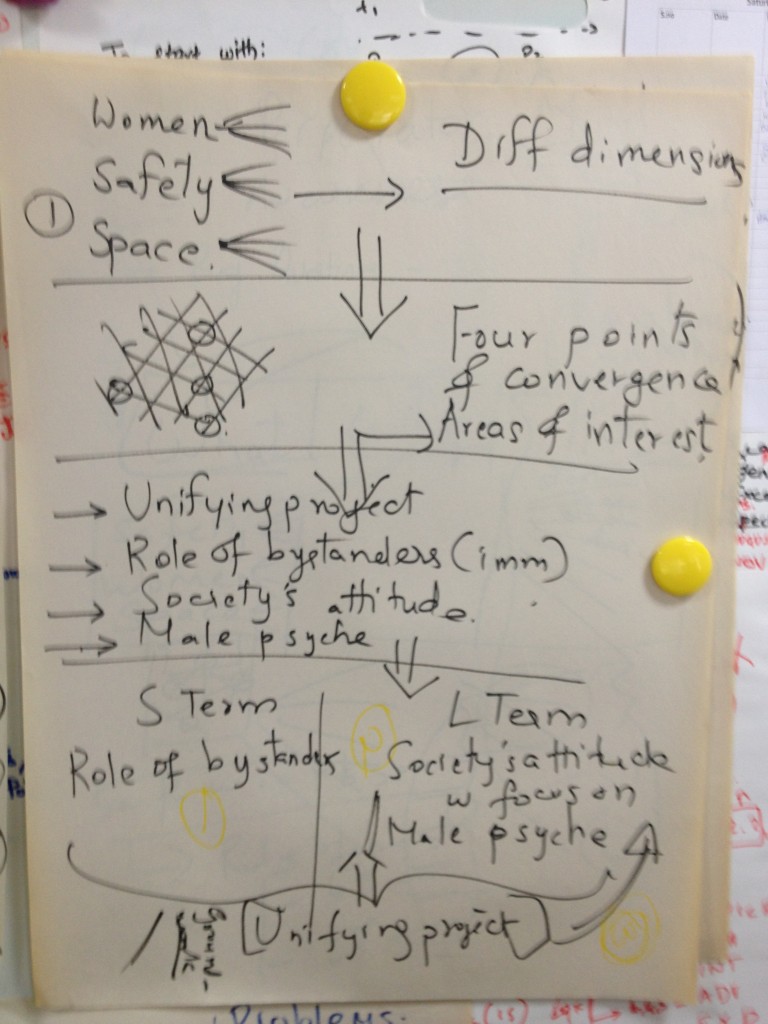 To start with:
t1
P2
Women
Safety
Space.
①
Diff dimensions
Four points
of convergence
Areas of interest
→ Unifying project
→ Role of bystanders (imm)
→ Society's attitude.
→ Male psyche
S Term
Role of bystanders
1
L Term
2
Society's attitude
w focus on
Male psyche
[Unifying project]
Ground-
Problems.
(is)